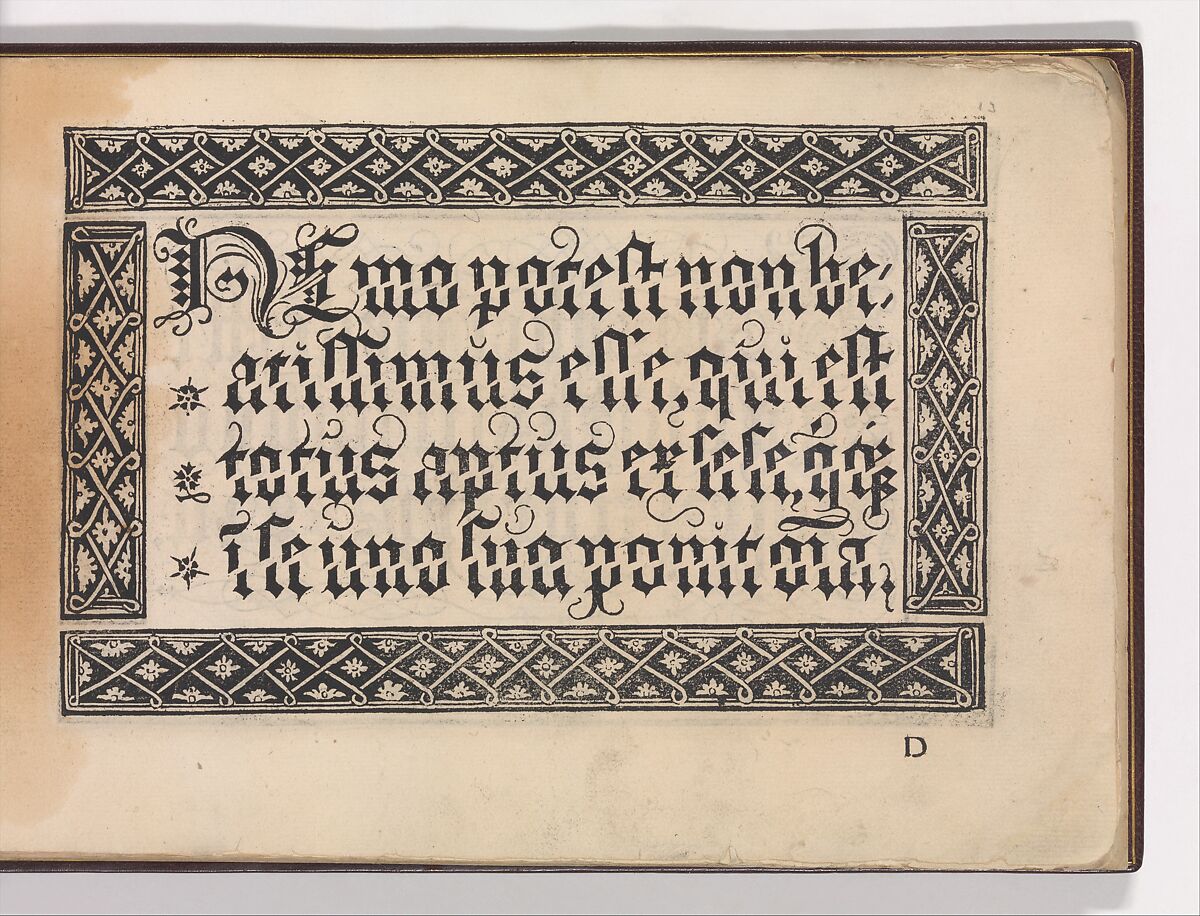 NEmo potest non be-
atissimus esse, qui est
totus aptus ex sese, q́qꝫ
ī se uno sua ponit oīa,
D